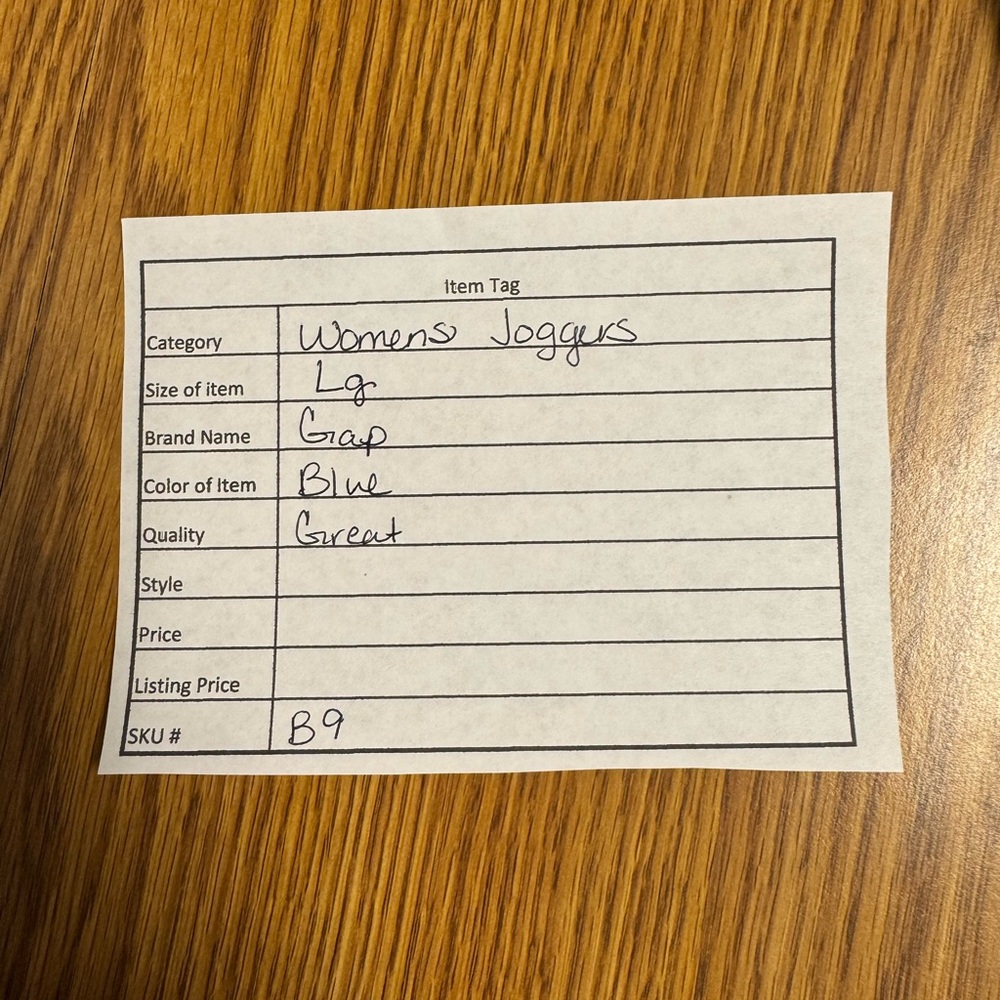 Item Tag
Category Womens Joggers
Size of item Lg
Brand Name Gap
Color of Item Blue
Quality Great
Style
Price
Listing Price
SKU # B9